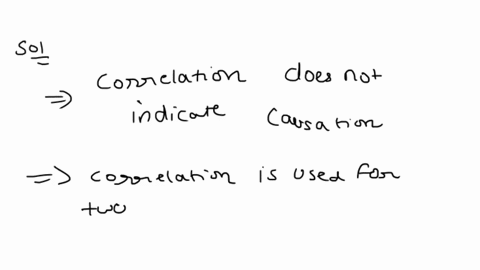 Sol
⇒ correlation does not
indicate causation
⇒ correlation is used for
two